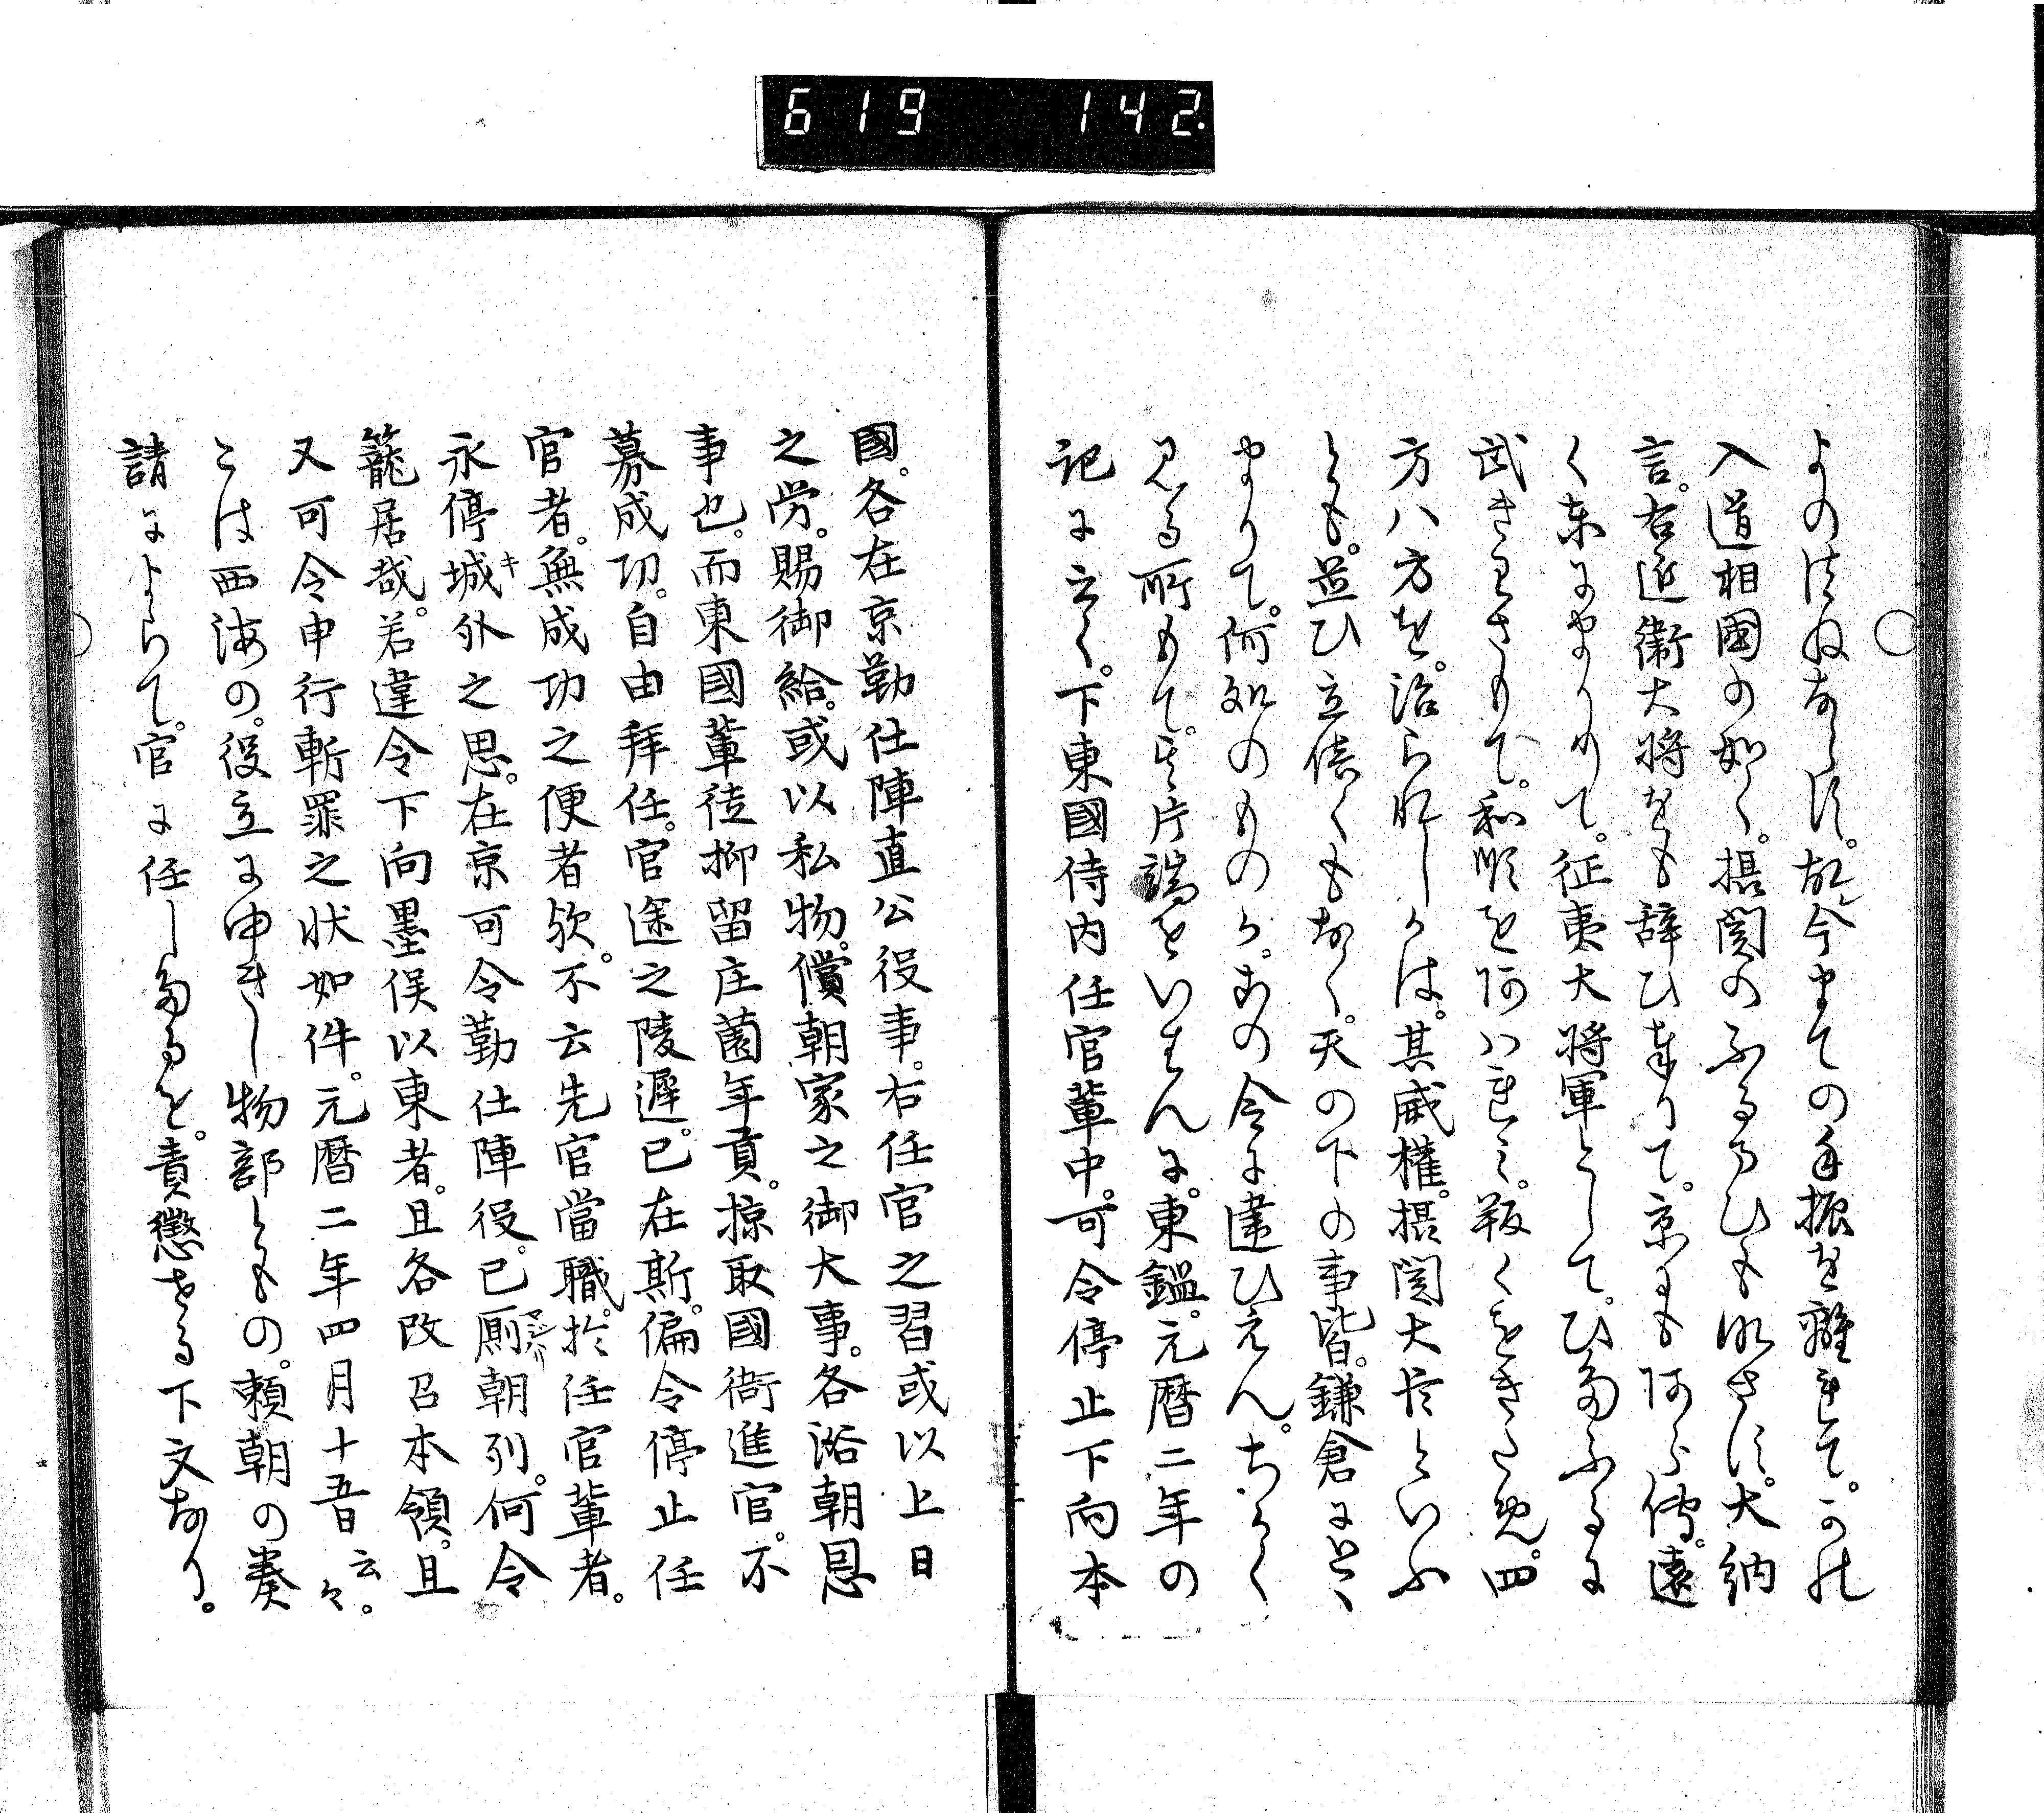 619 142.
よのはぬならす。故今まての手振を離れて。かの
入道相國の如く。摂関のふるまひもなさす。大納
言。右近衛大将をも辞ひ奉りて。京にもあらす。遠
く東にありて。征夷大将軍として。ひたふるに
武きわさもて。和順をあはれミ。叛くをきため。四
方八方を。治られしかは。其威権。摂関大臣といふ
とも。並ひ立儔くもなく。天の下の事皆。鎌倉にとゝ
まりて。何処のものか。あの令に違ひえん。ちかく
見る所もて。其片端をいはんに。東鑑。元暦二年の
記に云く。下東國侍内任官輩中。可令停止下向本
國。各在京勤仕陣直公役事。右任官之習或以上日
之労。賜御給。或以私物。償朝家之御大事。各浴朝恩
事也。而東國輩徒抑留庄薗年貢。掠取國衙進官。不
募成功。自由拜任。官途之陵遲。已在斯。偏令停止任
官者。無成功之便者欤。不云先官當職。於任官輩者。
永停城外之思。在京可令勤仕陣役。已厠朝列。何令
籠居哉。若違令下向墨俣以東者。且各改召本領。且
又可令申行斬罪之状如件。元暦二年四月十五日云々。
こは西海の。役立に申きし物部ともの。頼朝の奏
請によらて。官に任したるを。責懲せる下文なり。